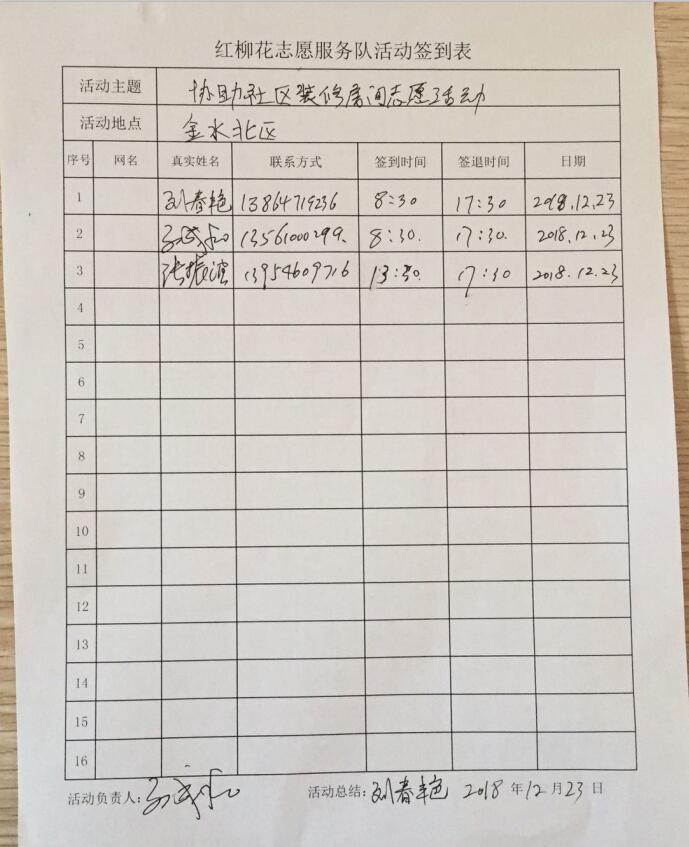 红柳花志愿服务队活动签到表
活动主题 协助社区装修房间志愿活动
活动地点 金水北区
序号 网名 真实姓名 联系方式 签到时间 签退时间 日期
1 刘春艳 13864719236 8:30 17:30 2018.12.23
2 13561000299. 8:30. 17:30. 2018.12.23
3 张振滨 13954609716 13:30. 17:30 2018.12.23
4
5
6
7
8
9
10
11
12
13
14
15
16
活动负责人: 活动总结: 刘春艳 2018 年 12 月 23 日